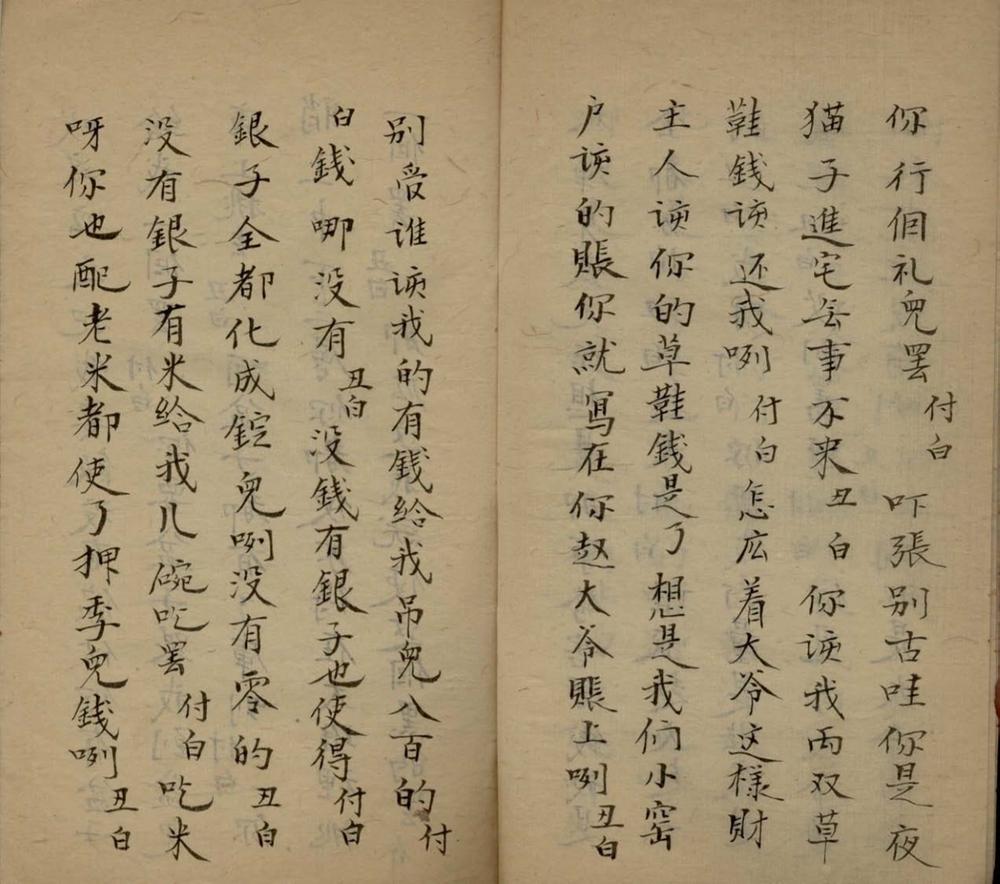 你行個礼兒罢付白吓張别古哇你是夜
猫子進宅無事不来丑白你该我両双草
鞋錢该还我咧付白怎広着大爷这様財
主人该你的草鞋錢是了想是我们小窑
户该的賬你就寫在你赵大爷賬上咧丑白
别受谁该我的有錢給我吊兒八百的付
白錢哪没有丑白没錢有銀子也使得付白
銀子全都化成錠兒咧没有零的丑白
没有銀子有米給我几碗吃罢付白吃米
呀你也配老米都使了押季兒錢咧丑白